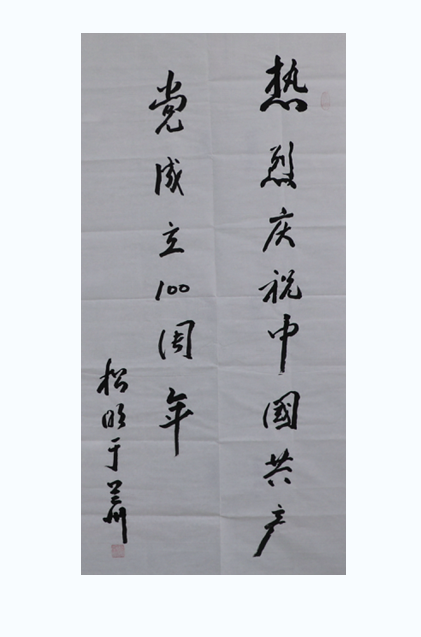 热烈庆祝中國共产
党成立100周年
松明于兰州